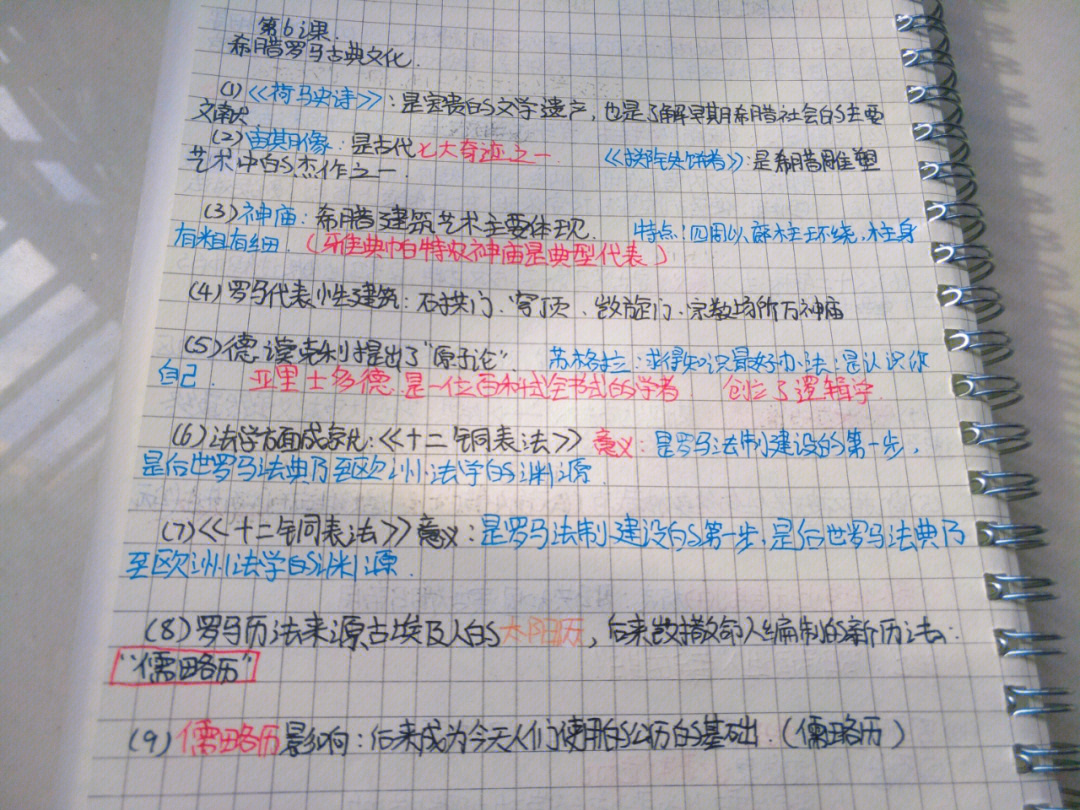 第6课.
希腊罗马古典文化.
(1)《荷马史诗》:是宝贵的文学遗产,也是了解早期希腊社会的主要
文献
(2)宙斯像:是古代七大奇迹之一 《掷铁饼者》:是希腊雕塑
艺术中的杰作之一.
(3)神庙:希腊建筑艺术主要体现. 特点:四周以廊柱环绕,柱身
有粗有细.(雅典帕特农神庙是典型代表)
(4)罗马代表性建筑:石拱门、穹顶、凯旋门、宗教场所万神庙
(5)德谟克利提出了"原子论" 苏格拉:求得知识最好办法:是认识你
自己. 亚里士多德.是一位百科式全书式的学者. 创立了逻辑学.
(6)法学方面成就:《十二铜表法》意义:是罗马法制建设的第一步,
是后世罗马法典乃至欧洲法学的渊源.
(7)《十二铜表法》意义:是罗马法制建设的第一步,是后世罗马法典乃
至欧洲法学的渊源.
(8)罗马历法来源古埃及人的太阳历,后来凯撒命人编制的新历法:
"儒略历"
(9)儒略历影响:后来成为今天人们使用的公历的基础.(儒略历)